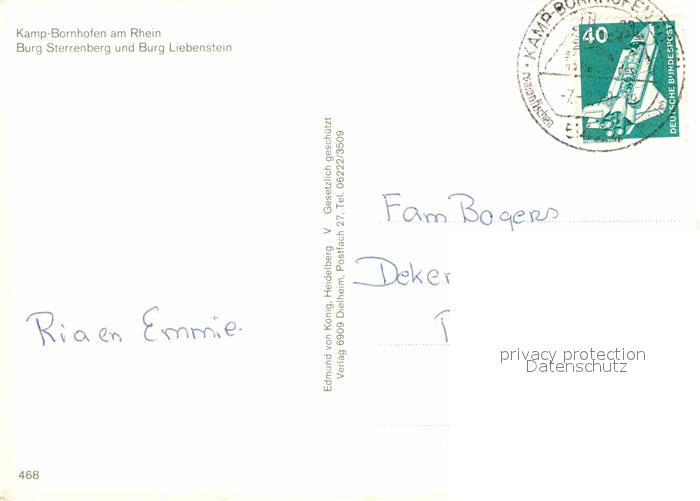 Kamp-Bornhofen am Rhein
Burg Sterrenberg und Burg Liebenstein
KAMP-BORNHOFEN
40
DEUTSCHE BUNDESPOST
Edmund von König, Heidelberg V Gesetzlich geschützt
Verlag 6909 Dielheim, Postfach 27, Tel. 06222/3509
Fam Bogers
Deker
T
Ria en Emmie
privacy protection
Datenschutz
468